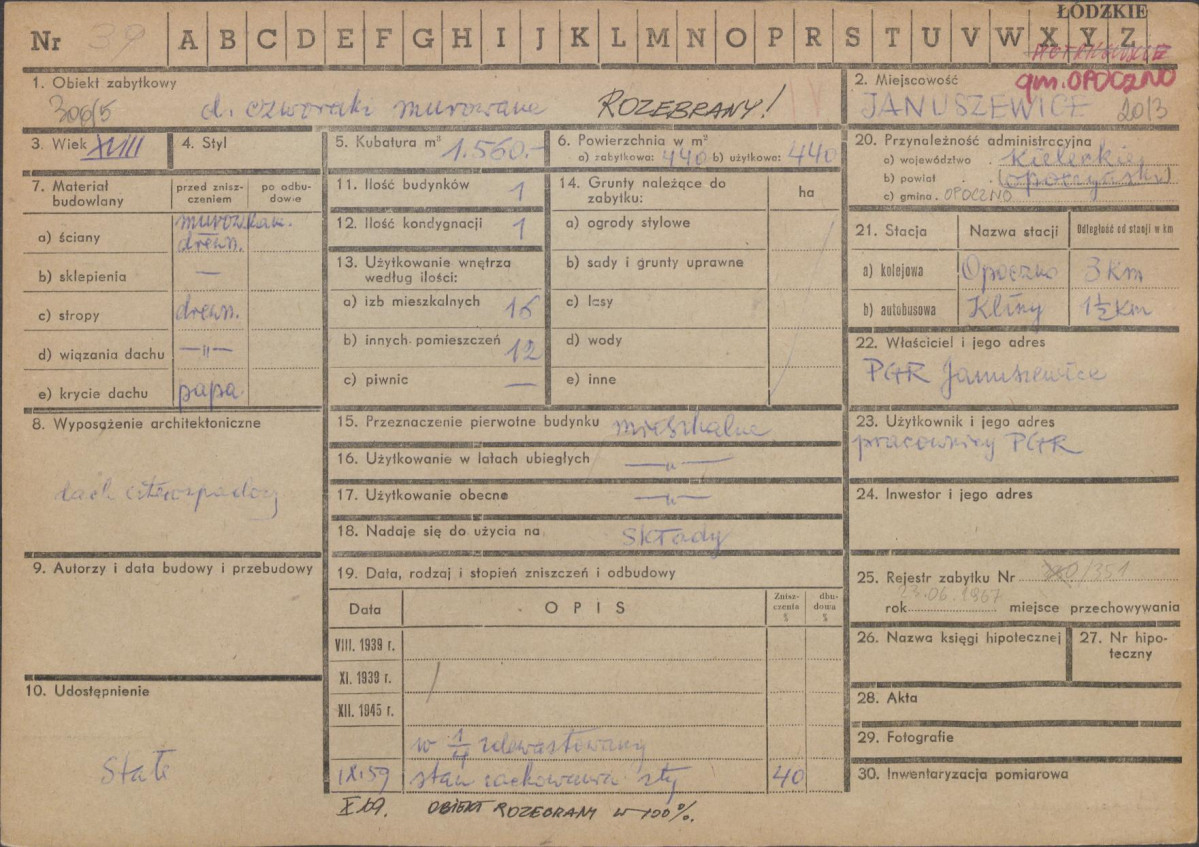 ŁÓDZKIE
Nr 39 A B C D E F G H I J K L M N O P R S T U V W X Y Z
PIOTRKOWSKIE
gm. OPOCZNO
1. Obiekt zabytkowy
d. czworaki murowane ROZEBRANY!
2. Miejscowość
JANUSZEWICE 2013
3. Wiek XVIII
4. Styl
5. Kubatura m³ 1.560.-
6. Powierzchnia w m²
a) zabytkowa: 440 b) użytkowa: 440
7. Materiał budowlany
przed zniszczeniem
po odbudowie
a) ściany murow. kam. drewn.
b) sklepienia —
c) stropy drewn.
d) wiązania dachu —"—
e) krycie dachu papa
8. Wyposażenie architektoniczne
dach czterospadowy
9. Autorzy i data budowy i przebudowy
10. Udostępnienie
Stałe
11. Ilość budynków 1
12. Ilość kondygnacji 1
13. Użytkowanie wnętrza według ilości:
a) izb mieszkalnych 16
b) innych pomieszczeń 12
c) piwnic —
14. Grunty należące do zabytku:
ha
a) ogrody stylowe
b) sady i grunty uprawne
c) lasy
d) wody
e) inne
15. Przeznaczenie pierwotne budynku mieszkalne
16. Użytkowanie w latach ubiegłych —"—
17. Użytkowanie obecne —"—
18. Nadaje się do użycia na składy
19. Data, rodzaj i stopień zniszczeń i odbudowy
Data OPIS Zniszczenia % dbudowa %
VIII. 1939 r.
XI. 1939 r.
XII. 1945 r.
w 1/4 zdewastowany
IX.59 stan zachowania zły 40
X 69. OBIEKT ROZEBRANY W 100%.
20. Przynależność administracyjna
a) województwo . kieleckie
b) powiat . (opoczyński)
c) gmina . OPOCZNO
21. Stacja Nazwa stacji Odległość od stacji w km
a) kolejowa Opoczno 3 km
b) autobusowa Kliny 1½ km
22. Właściciel i jego adres
PGR Januszewice
23. Użytkownik i jego adres
pracownicy PGR
24. Inwestor i jego adres
25. Rejestr zabytku Nr /351
23.06.1967
rok miejsce przechowywania
26. Nazwa księgi hipotecznej
27. Nr hipoteczny
28. Akta
29. Fotografie
30. Inwentaryzacja pomiarowa